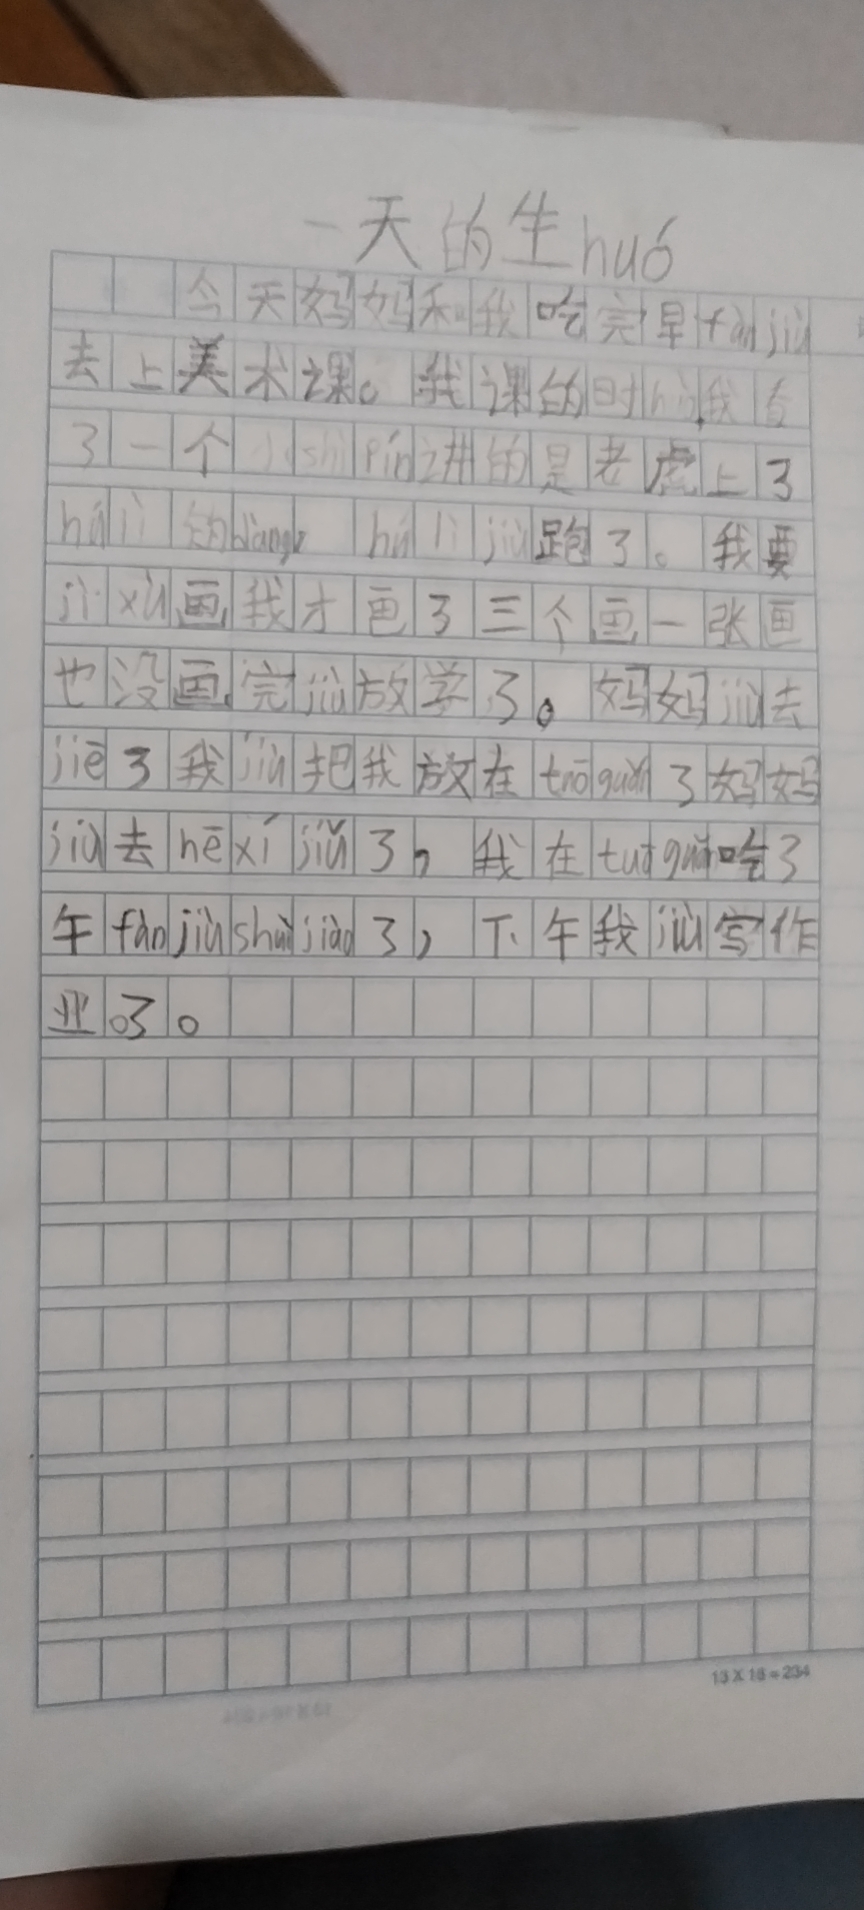 一天的生huó
今天妈妈和我吃完早fàn jiù
去上美术课。我课的时hòu我看
了一个小shì pín讲的是老虎上了
hú li 的dàng, hú li jiù跑了。我要
jì xù画我才画了三个画一张画
也没画完jiù放学了。妈妈jiù去
jiē了我jiù把我放在tuō guǎn了妈妈
jiù去hē xǐ jiǔ了,我在tuō guǎn吃了
午fàn jiù shuì jiào了,下午我jiù写作
业了。
13×18=234